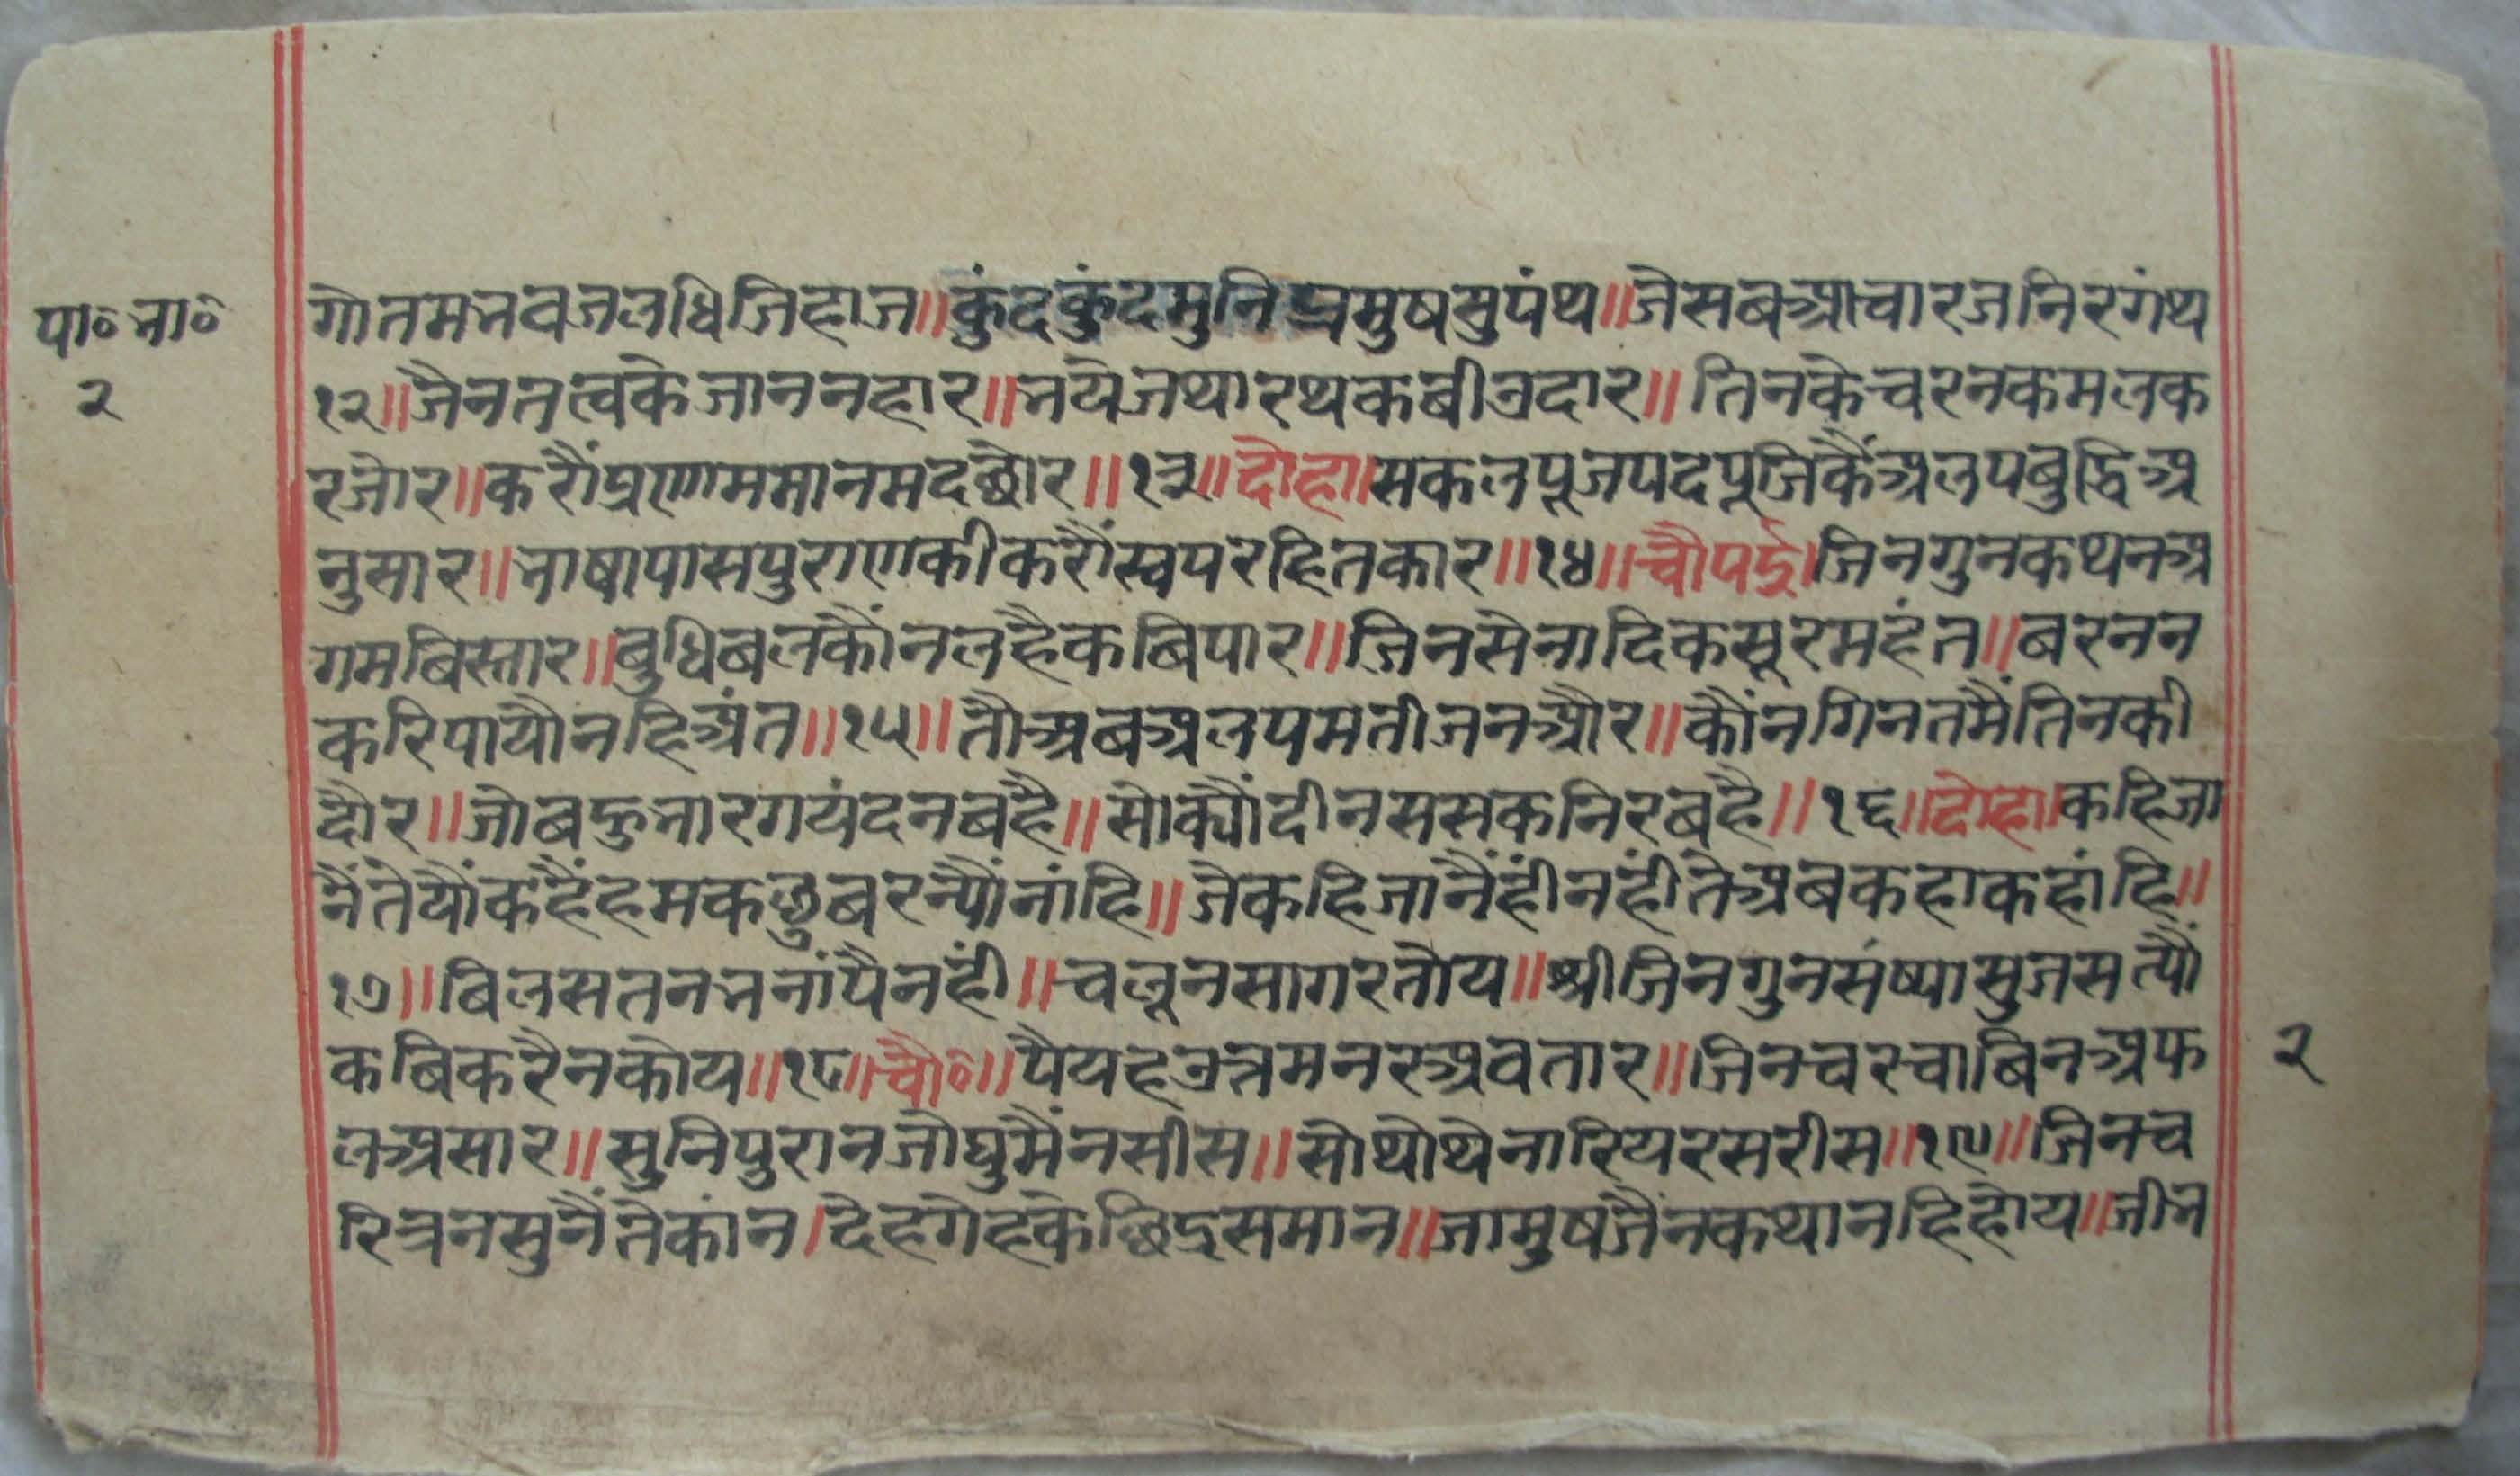 पा॰ भा॰
२
गोतमभवजलधिजिहाज॥कुंदकुंदमुनिप्रमुषसुपंथ॥जेसबआचारजनिरगंथ
१२॥जैनतत्वकेजाननहार॥भयेजथारथकबीउदार॥तिनकेचरनकमलक
रजोर॥करौंप्रणाममानमदछोर॥१३॥दोहा।सकलपूजपदपूजिकैंअलपबुद्धिअ
नुसार॥भाषापासपुराणकीकरौंस्वपरहितकार॥१४॥चौपई।जिनगुनकथनअ
गमबिस्तार॥बुधिबलकौंनलहैकबिपार॥जिनसेनादिकसूरमहंत॥बरनन
करिपायौनहिअंत॥१५॥तौअबअलपमतीजनऔर॥कौंनगिनतमैंतिनकी
दौर॥जोबहुभारगयंदनबहै॥सोक्यौंदीनससकनिरबहै॥१६॥दोहा।कहिजा
नैंतेयौंकहैंहमकछुबरन्यौंनांहि॥जेकहिजानैंहींनहींतेअबकहाकहांहि॥
१७॥बिलसतनभनांपैनहीं॥चलूनसागरतोय॥श्रीजिनगुनसंष्यासुजसत्यौं
कबिकरैनकोय॥१८॥चौ॰॥पैयहउत्तमनरअवतार॥जिनचरचाबिनअफ
लअसार॥सुनिपुरानजोघुमैंनसीस॥सोथोथेनारियरसरीस॥१९॥जिनच
२
रित्रनसुनैंतेकांन।देहगेहकेछिद्रसमान॥जामुषजैंनकथानहिहोय॥जीभ